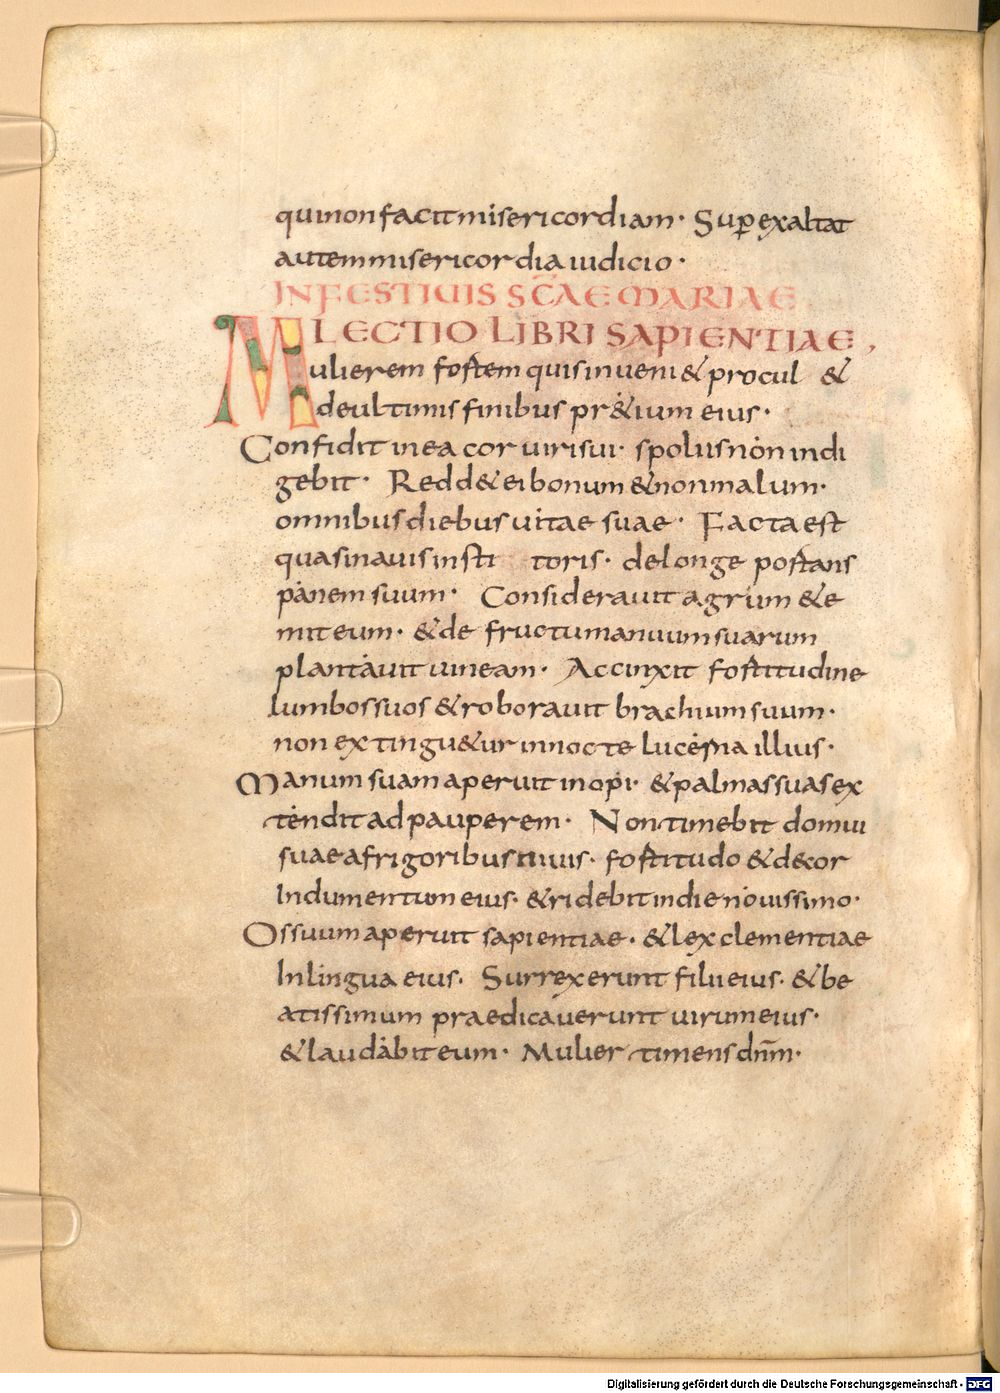 qui non facit misericordiam · Sup̱exaltat
autem misericordia iudicio ·
IN FESTIUIS SC̄AE MARIAE
LECTIO LIBRI SAPIENTIAE,
Mulierem fortem quis inueni& procul &
de ultimis finibus pr&ium eius ·
Confidit in ea cor uiri sui · spoliis non indi
gebit · Redd& ei bonum & non malum ·
omnibus diebus uitae suae · Facta est
quasi nauis insti toris · de longe portans
panem suum · Considerauit agrum & e
mit eum · & de fructu manuum suarum
plantauit uineam · Accinxit fortitudine
lumbos suos & roborauit brachium suum ·
non extingu&ur in nocte lucerna illius ·
Manum suam aperuit inopi · & palmas suas ex
tendit ad pauperem · Non timebit domui
suae a frigoribus niuis · fortitudo & decor
Indumentum eius · & ridebit in die nouissimo ·
Os suum aperuit sapientiae · & lex clementiae
In lingua eius · Surrexerunt filii eius · & be
atissimum praedicauerunt uirum eius ·
& laudabit eum · Mulier timens dn̄m ·
Digitalisierung gefördert durch die Deutsche Forschungsgemeinschaft - DFG